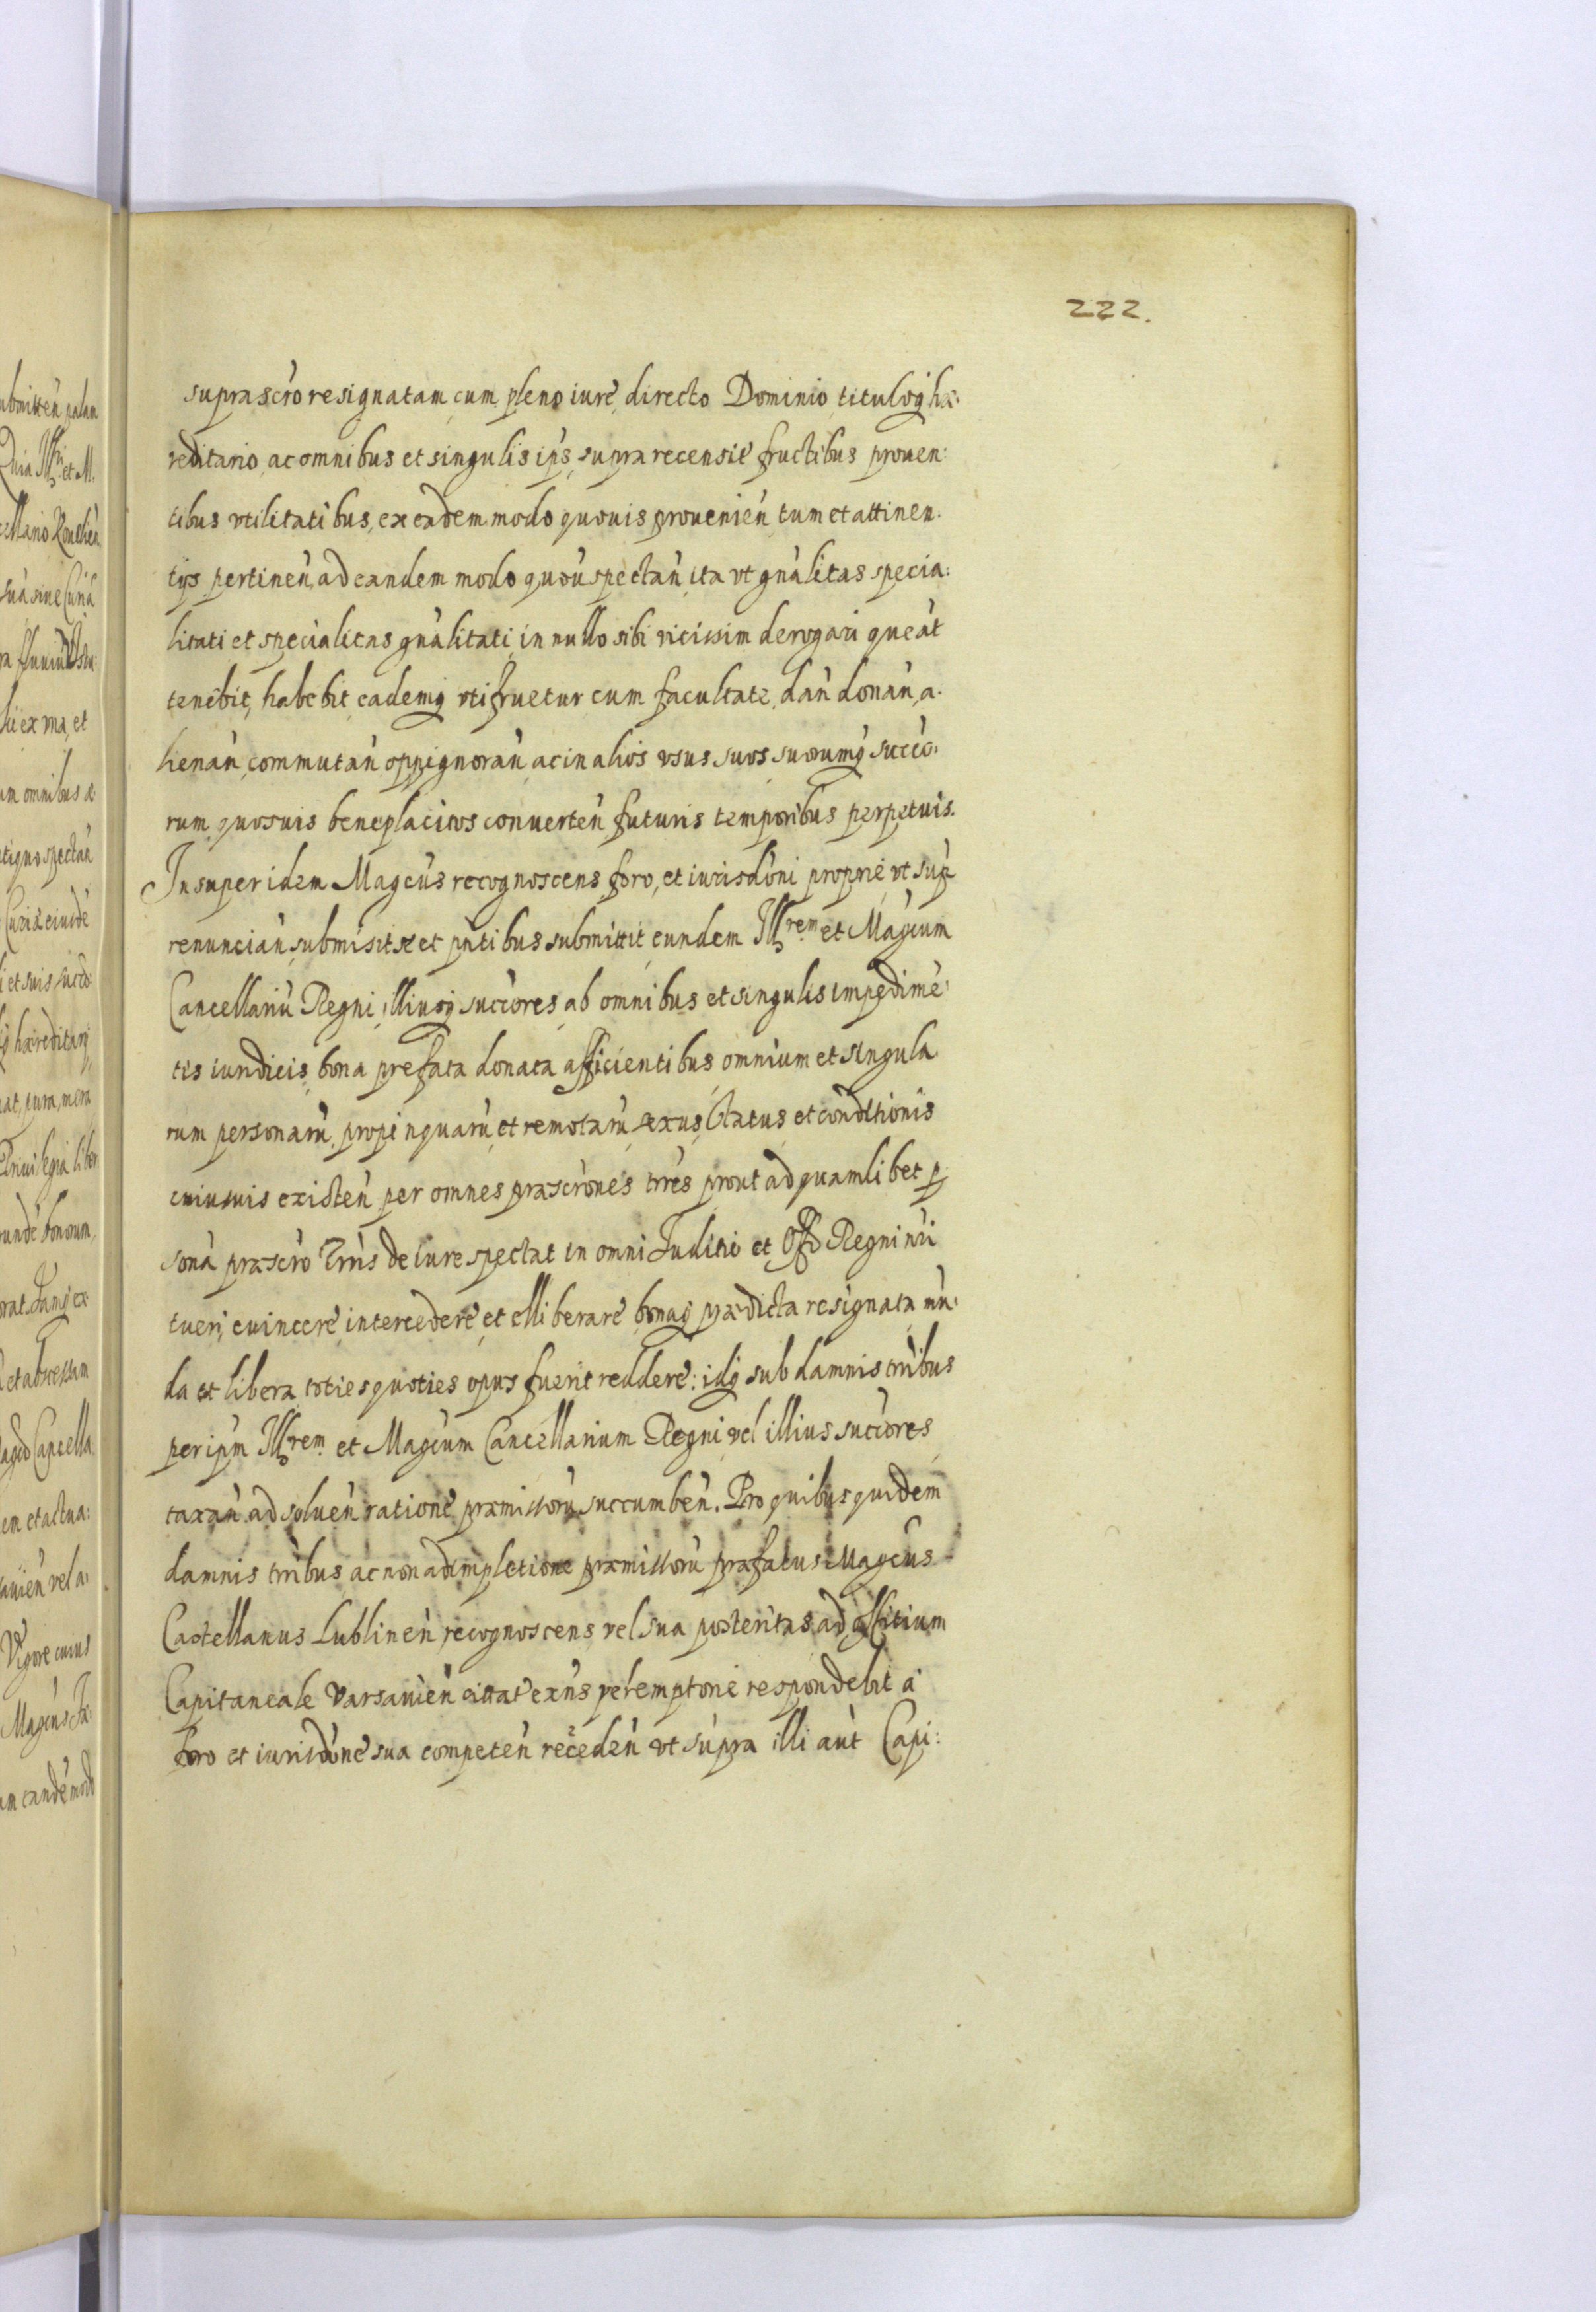 222.
suprascro resignatam cum pleno iure directo Dominio tituloq hæ:
reditario ac omnibus et singulis ips supra recensit fructibus prouen:
tibus vtilitatibus, ex eadem modo quouis prouenien tum et attinen:
tijs pertinen, ad eandem modo quou spectan ita vt gnalitas specia:
litati et specialitas gnalitati in nullo sibi vicissim derogari queat
tenebit, habebit eademq vtifruetur cum facultate dan donan, a:
lienan commutan oppignoran ac in alios vsus suos suorumq succo:
rum quosuis beneplacitos conuerten futuris temporibus perpetuis.
Insuper idem Magcus recognoscens foro, et iurisdoni proprie vt supra
renuncian submisit se et pntibus submittit eundem Illrem et Magcum
Cancellariu Regni illiusq succores ab omnibus et singulis impedime:
tis iuridicis bona prefata donata afficientibus omnium et singula
rum personaru propinquaru et remotaru sexus status et conditionis
cuiusuis existen per omnes præscrones trres prout ad quamlibet per
sona præscro Trris de iure spectat in omni Juditio et Offo Regni nri
tueri, euincere intercedere et elliberare bonaq prædicta resignata mu:
da et libera toties quoties opus fuerit reddere: idq sub damnis trribus
per ipm Illrem et Magcum Cancellarium Regni vel illius succores
taxan ad soluen ratione præmissoru succumben. Pro quibus quidem
damnis trribus ac non adimpletione præmissoru præfatus Magcus
Castellanus Lublinen recognoscens vel sua posteritas ad officium
Capitaneale Varsauien cittat exns peremptorie respondebit a
foro et iurisdone sua competen receden vt supra illi aut Capi: